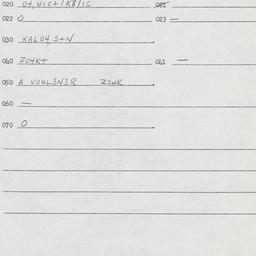 020 04, VICT/K8/15 021
022 0 023 —
030 KAL04, S+N
040 ZO4K+ 041 —
050 A VO4L3N3R ZO4K
060 —
070 0